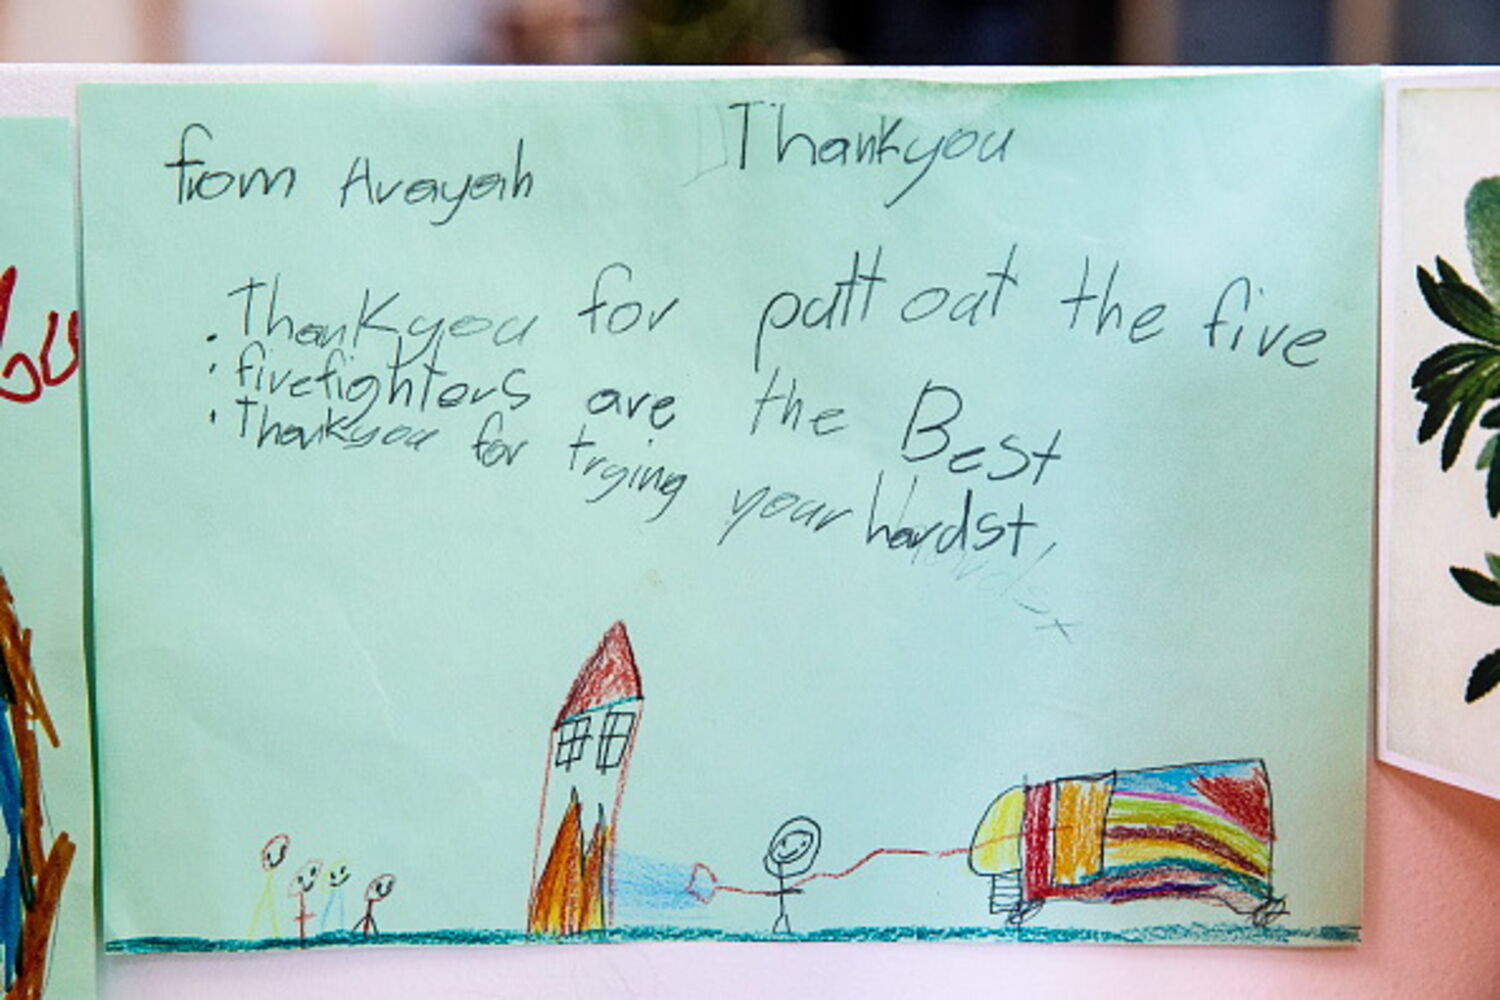 from Avayah
Thankyou
• Thankyou for putt out the five
• fivefighters are the Best
• Thankyou for trying your hardst